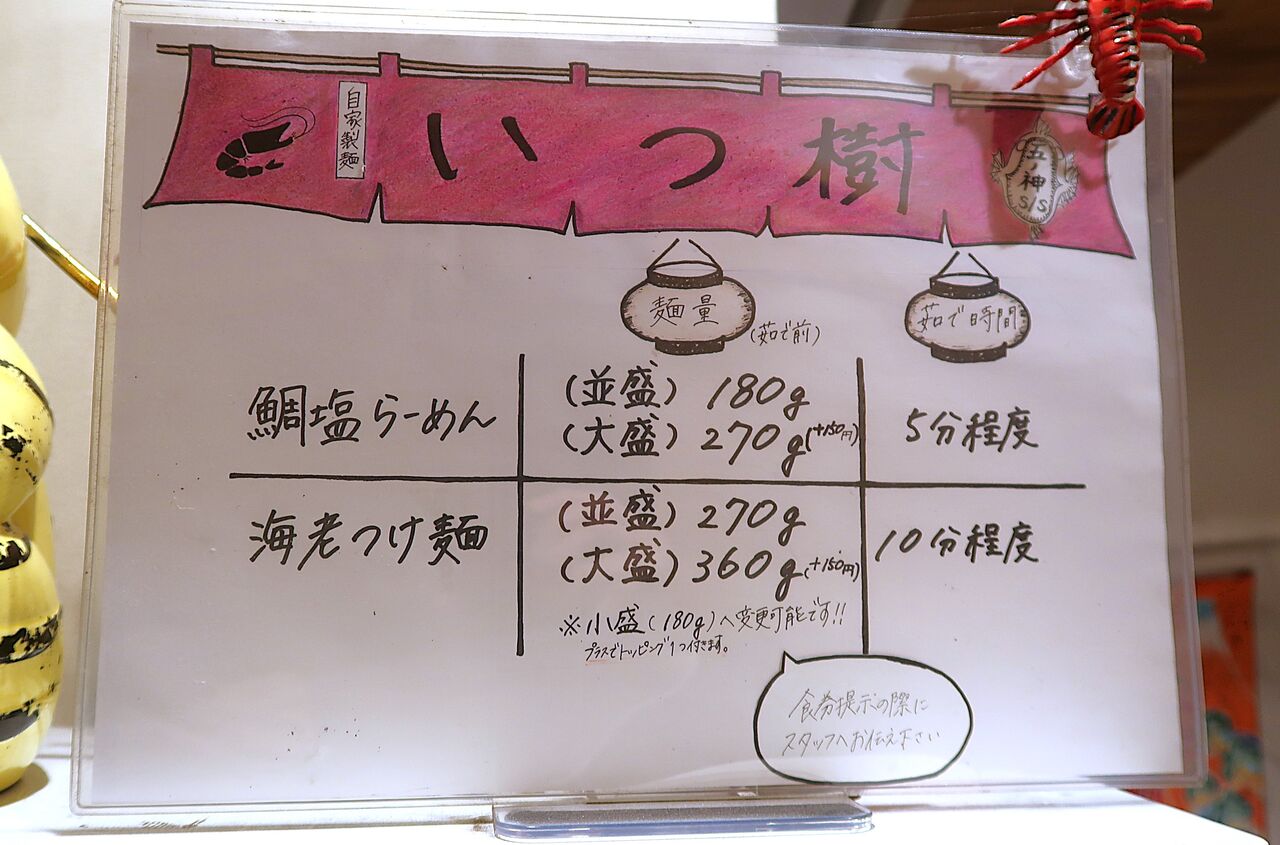 自家製麺
いつ樹
五ノ神
S/S
麺量
(茹で前)
茹で時間
鯛塩らーめん
(並盛) 180g
(大盛) 270g(+150円)
5分程度
海老つけ麺
(並盛) 270g
(大盛) 360g(+150円)
10分程度
※小盛(180g)へ変更可能です!!
プラスでトッピング1つ付きます。
食券提示の際に
スタッフへお伝え下さい